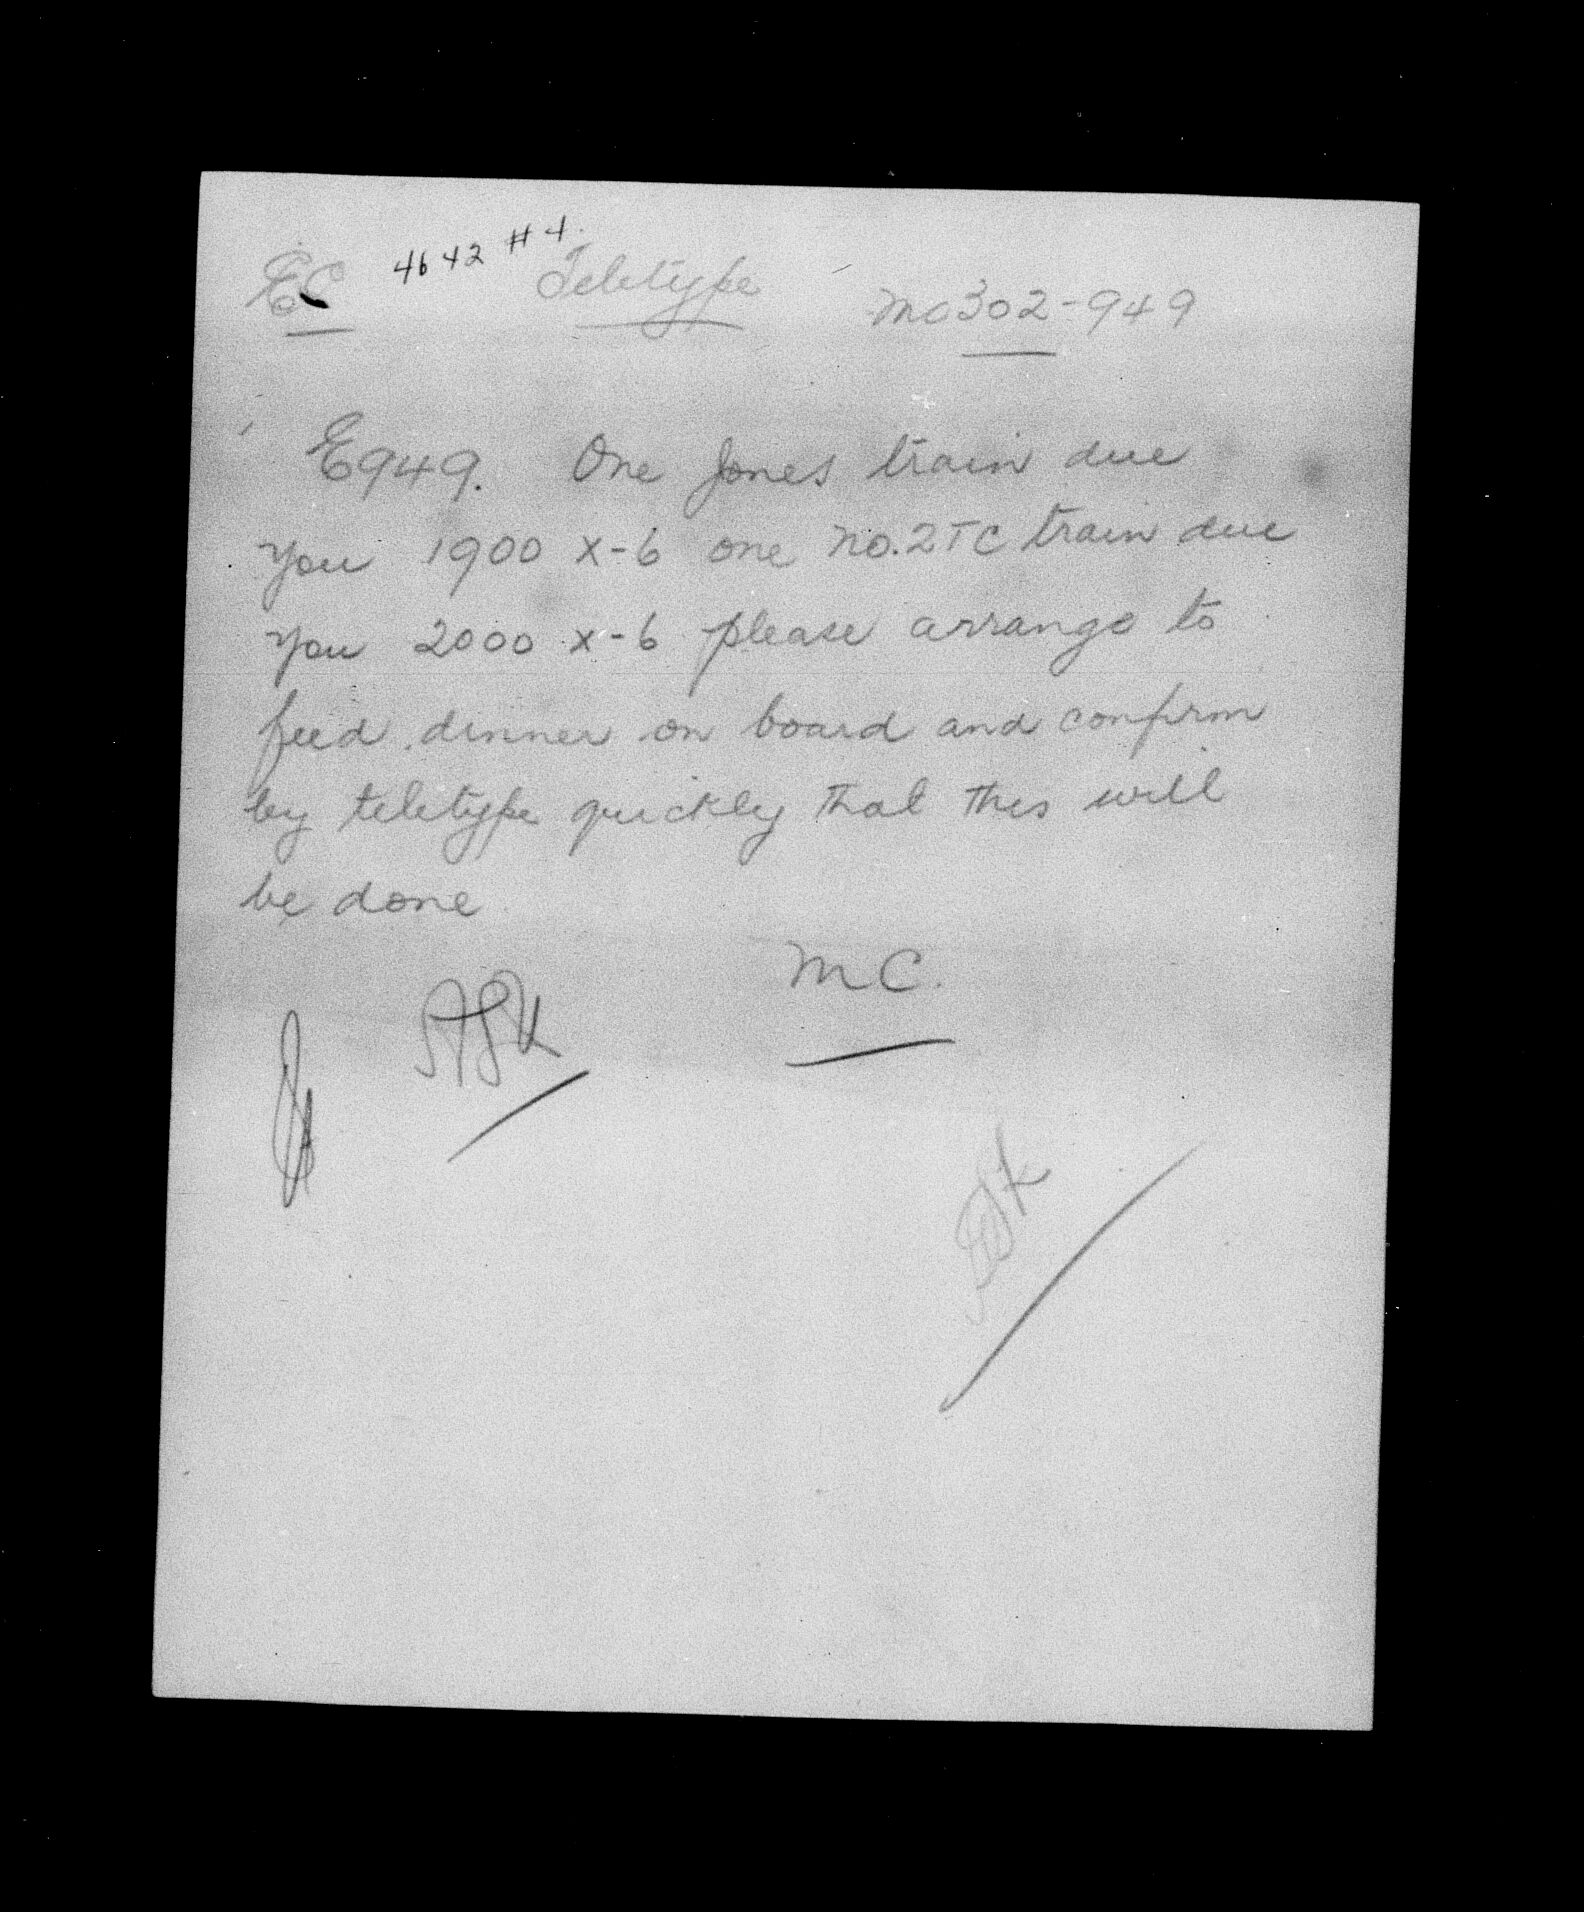 EC 4642 #4. Teletype MC302-949
E949. One Jones train due
you 1900 X-6 one No.2TC train due
you 2000 X-6 please arrange to
feed dinner on board and confirm
by teletype quickly that this will
be done
MC.